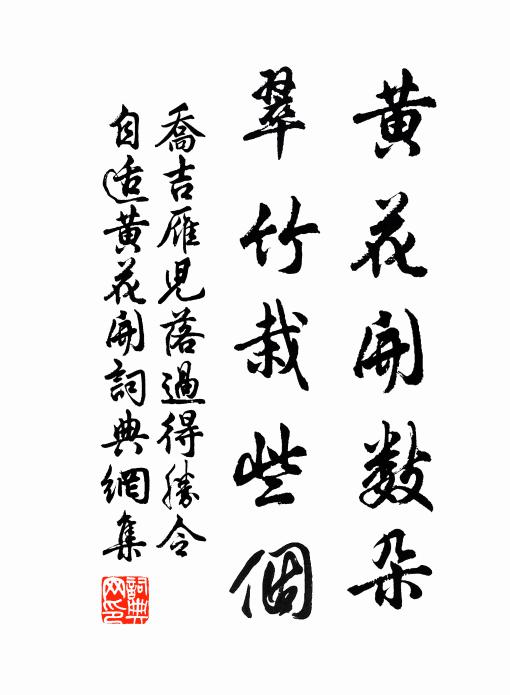 黄花開数朵
翠竹栽些個
喬吉雁兒落過得勝令
自适黄花開詞典網集
詞典网印